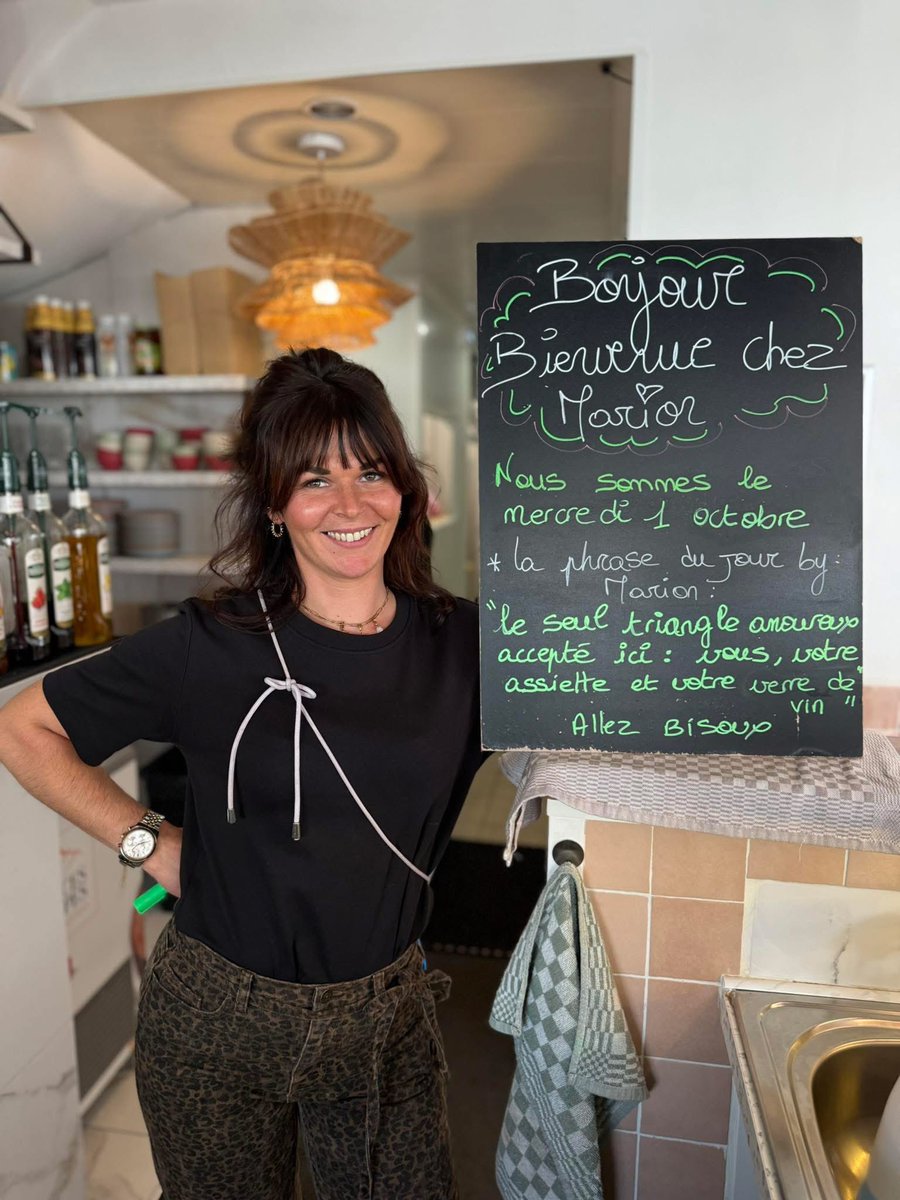 Bonjour
Bienvenue chez
Marion
Nous sommes le
mercredi 1 octobre
* la phrase du jour by:
Marion:
"le seul triangle amoureux
accepté ici: vous, votre
assiette et votre verre de
vin"
Allez Bisoux